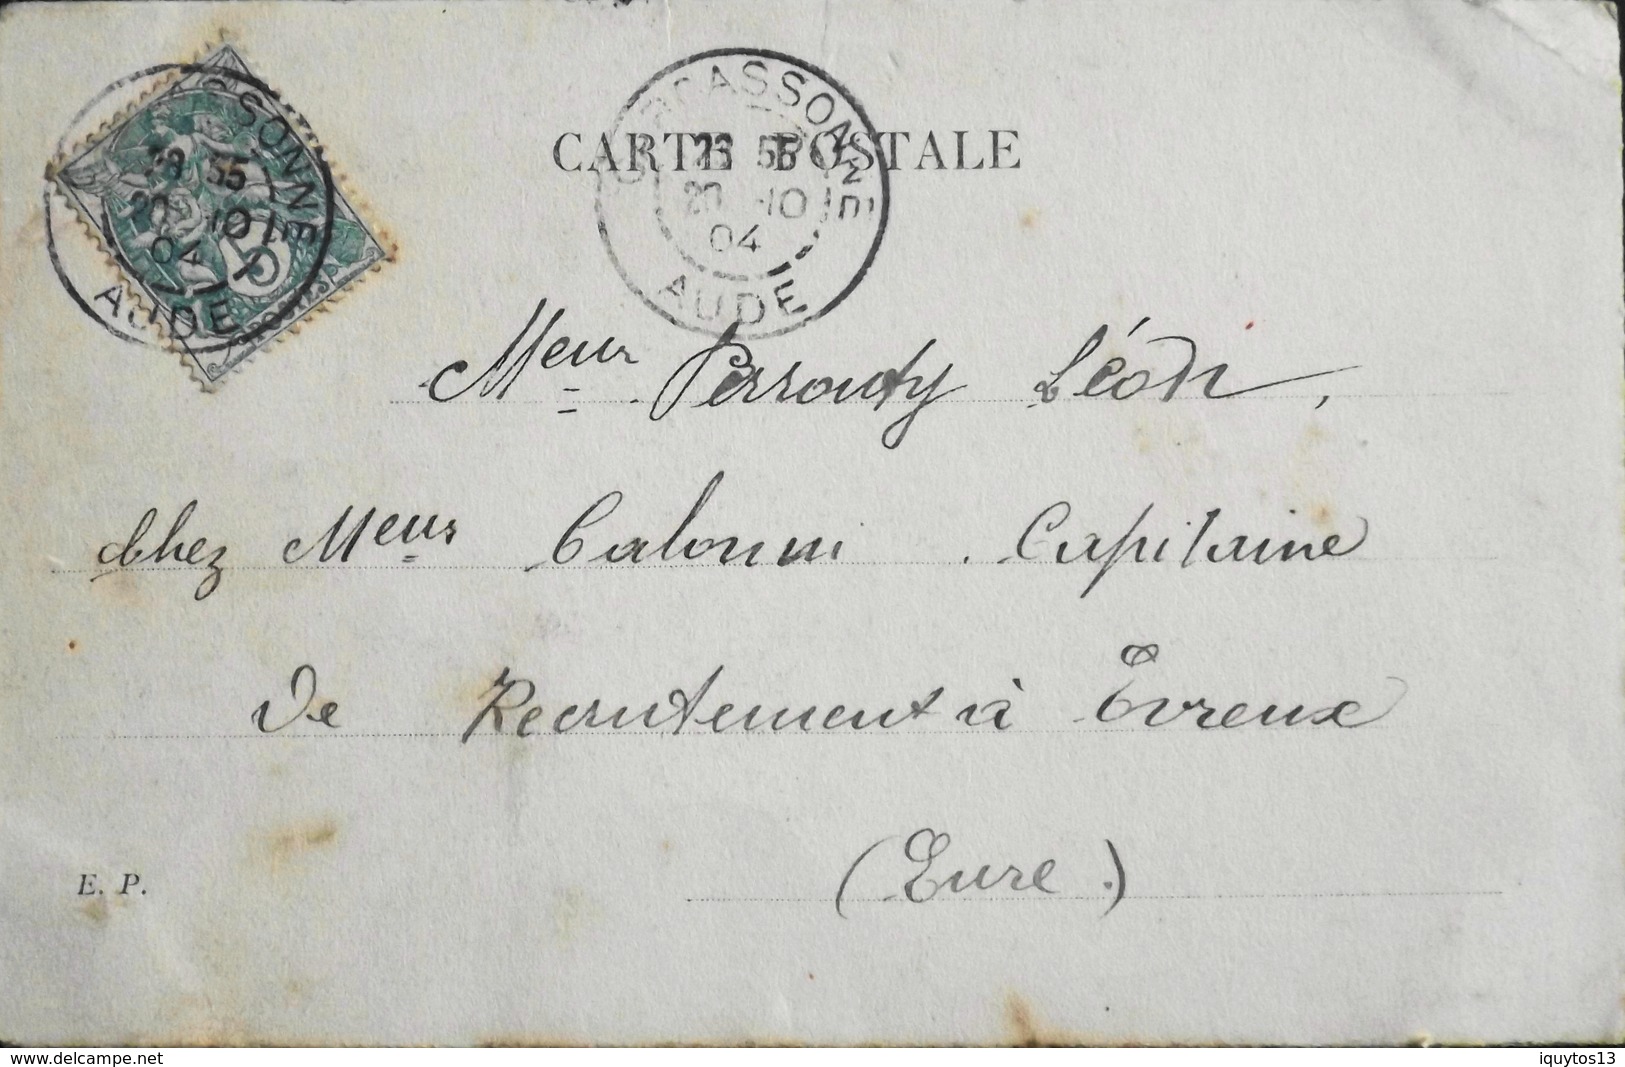 CARTE POSTALE
CARCASSONNE
23 55
20 -10
04
AUDE
SSONNE
55
20 -10
04
AUDE
5
POSTES
Meur Perrouty Léon,
Chez Meur Calonni. Capitaine
De Recrutement à Evreux
(Eure.)
E. P.
www.delcampe.net
iquytos13